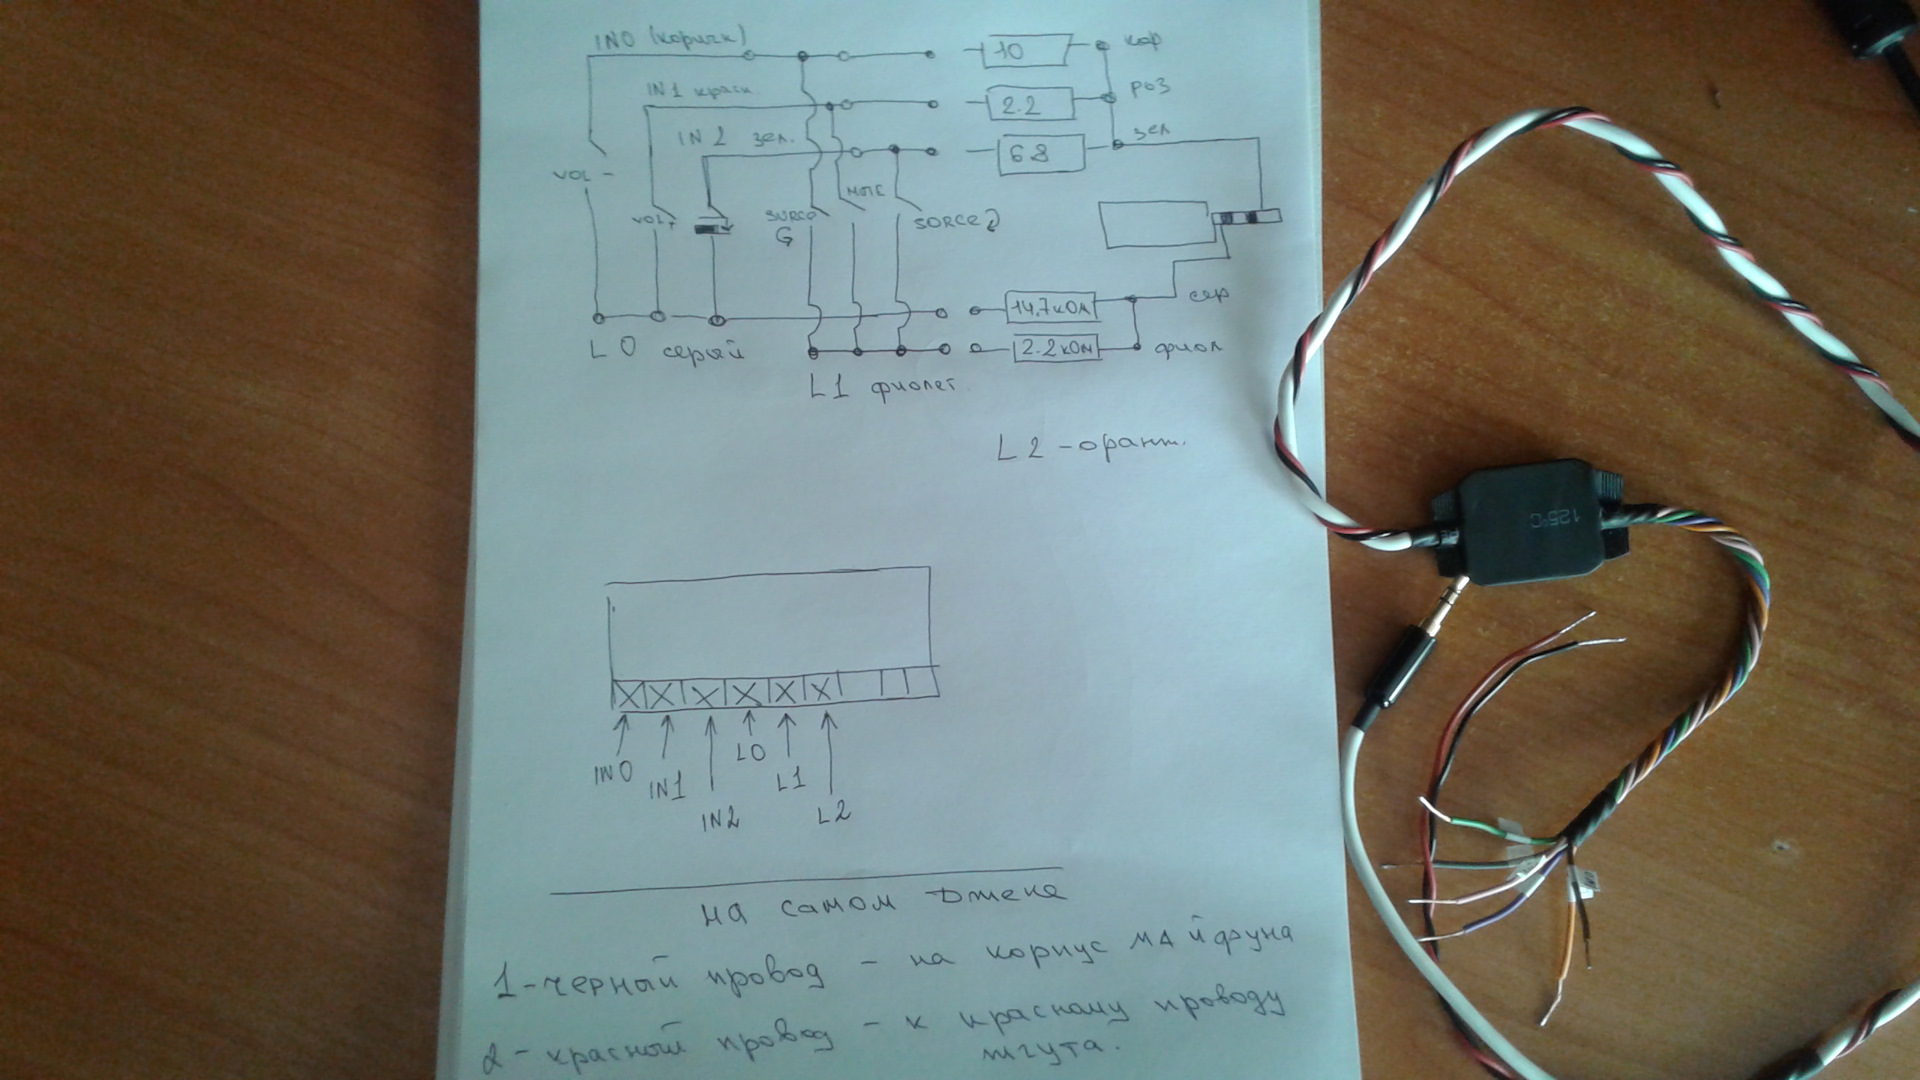 IN0 (коричн)
10
кор
IN1 красн.
2.2
роз
IN2 зел.
6.8
зел
VOL -
VOL+
SURCE
G
MUTE
SORCE2
14,7кОм
сер
L0 серый
2.2кОм
фиол
L1 фиолет.
L2 - оранж.
125°C
IN0
IN1
IN2
L0
L1
L2
на самом Джеке
1 - черный провод - на корпус майфуна
2 - красный провод - к красному проводу
жгута.